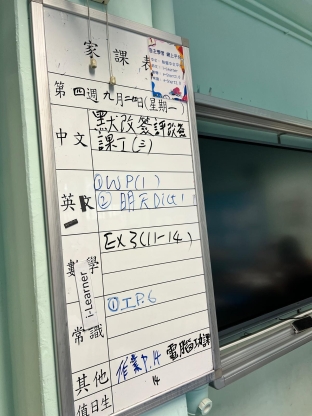 家課表
第四週 九月二十四日(星期一
中文
默改簽評改簽
課丁(三)
英文
①WP(1)
② 明天Dict 1
數學
EX3(11-14)
i-Learner
常識
①I P.6
其他
作業P.14 電腦功課
值日生
14